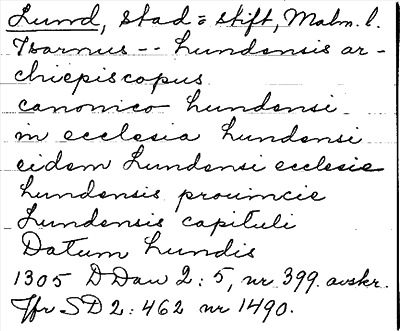 Lund, stad o stift, Malm. l.
Isarnus -- Lundensis ar-
chiepiscopus
canonico Lundensi
in ecclesia Lundensi
eidem Lundensi ecclesie
Lundensis prouincie
Lundensis capituli
Datum Lundis
1305 DDan 2:5, nr 399. avskr.
Jfr SD 2:462 nr 1490.